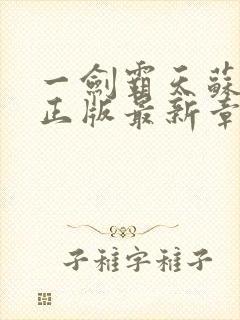 一劍霸天蘇
正版最新章
子稚字稚子